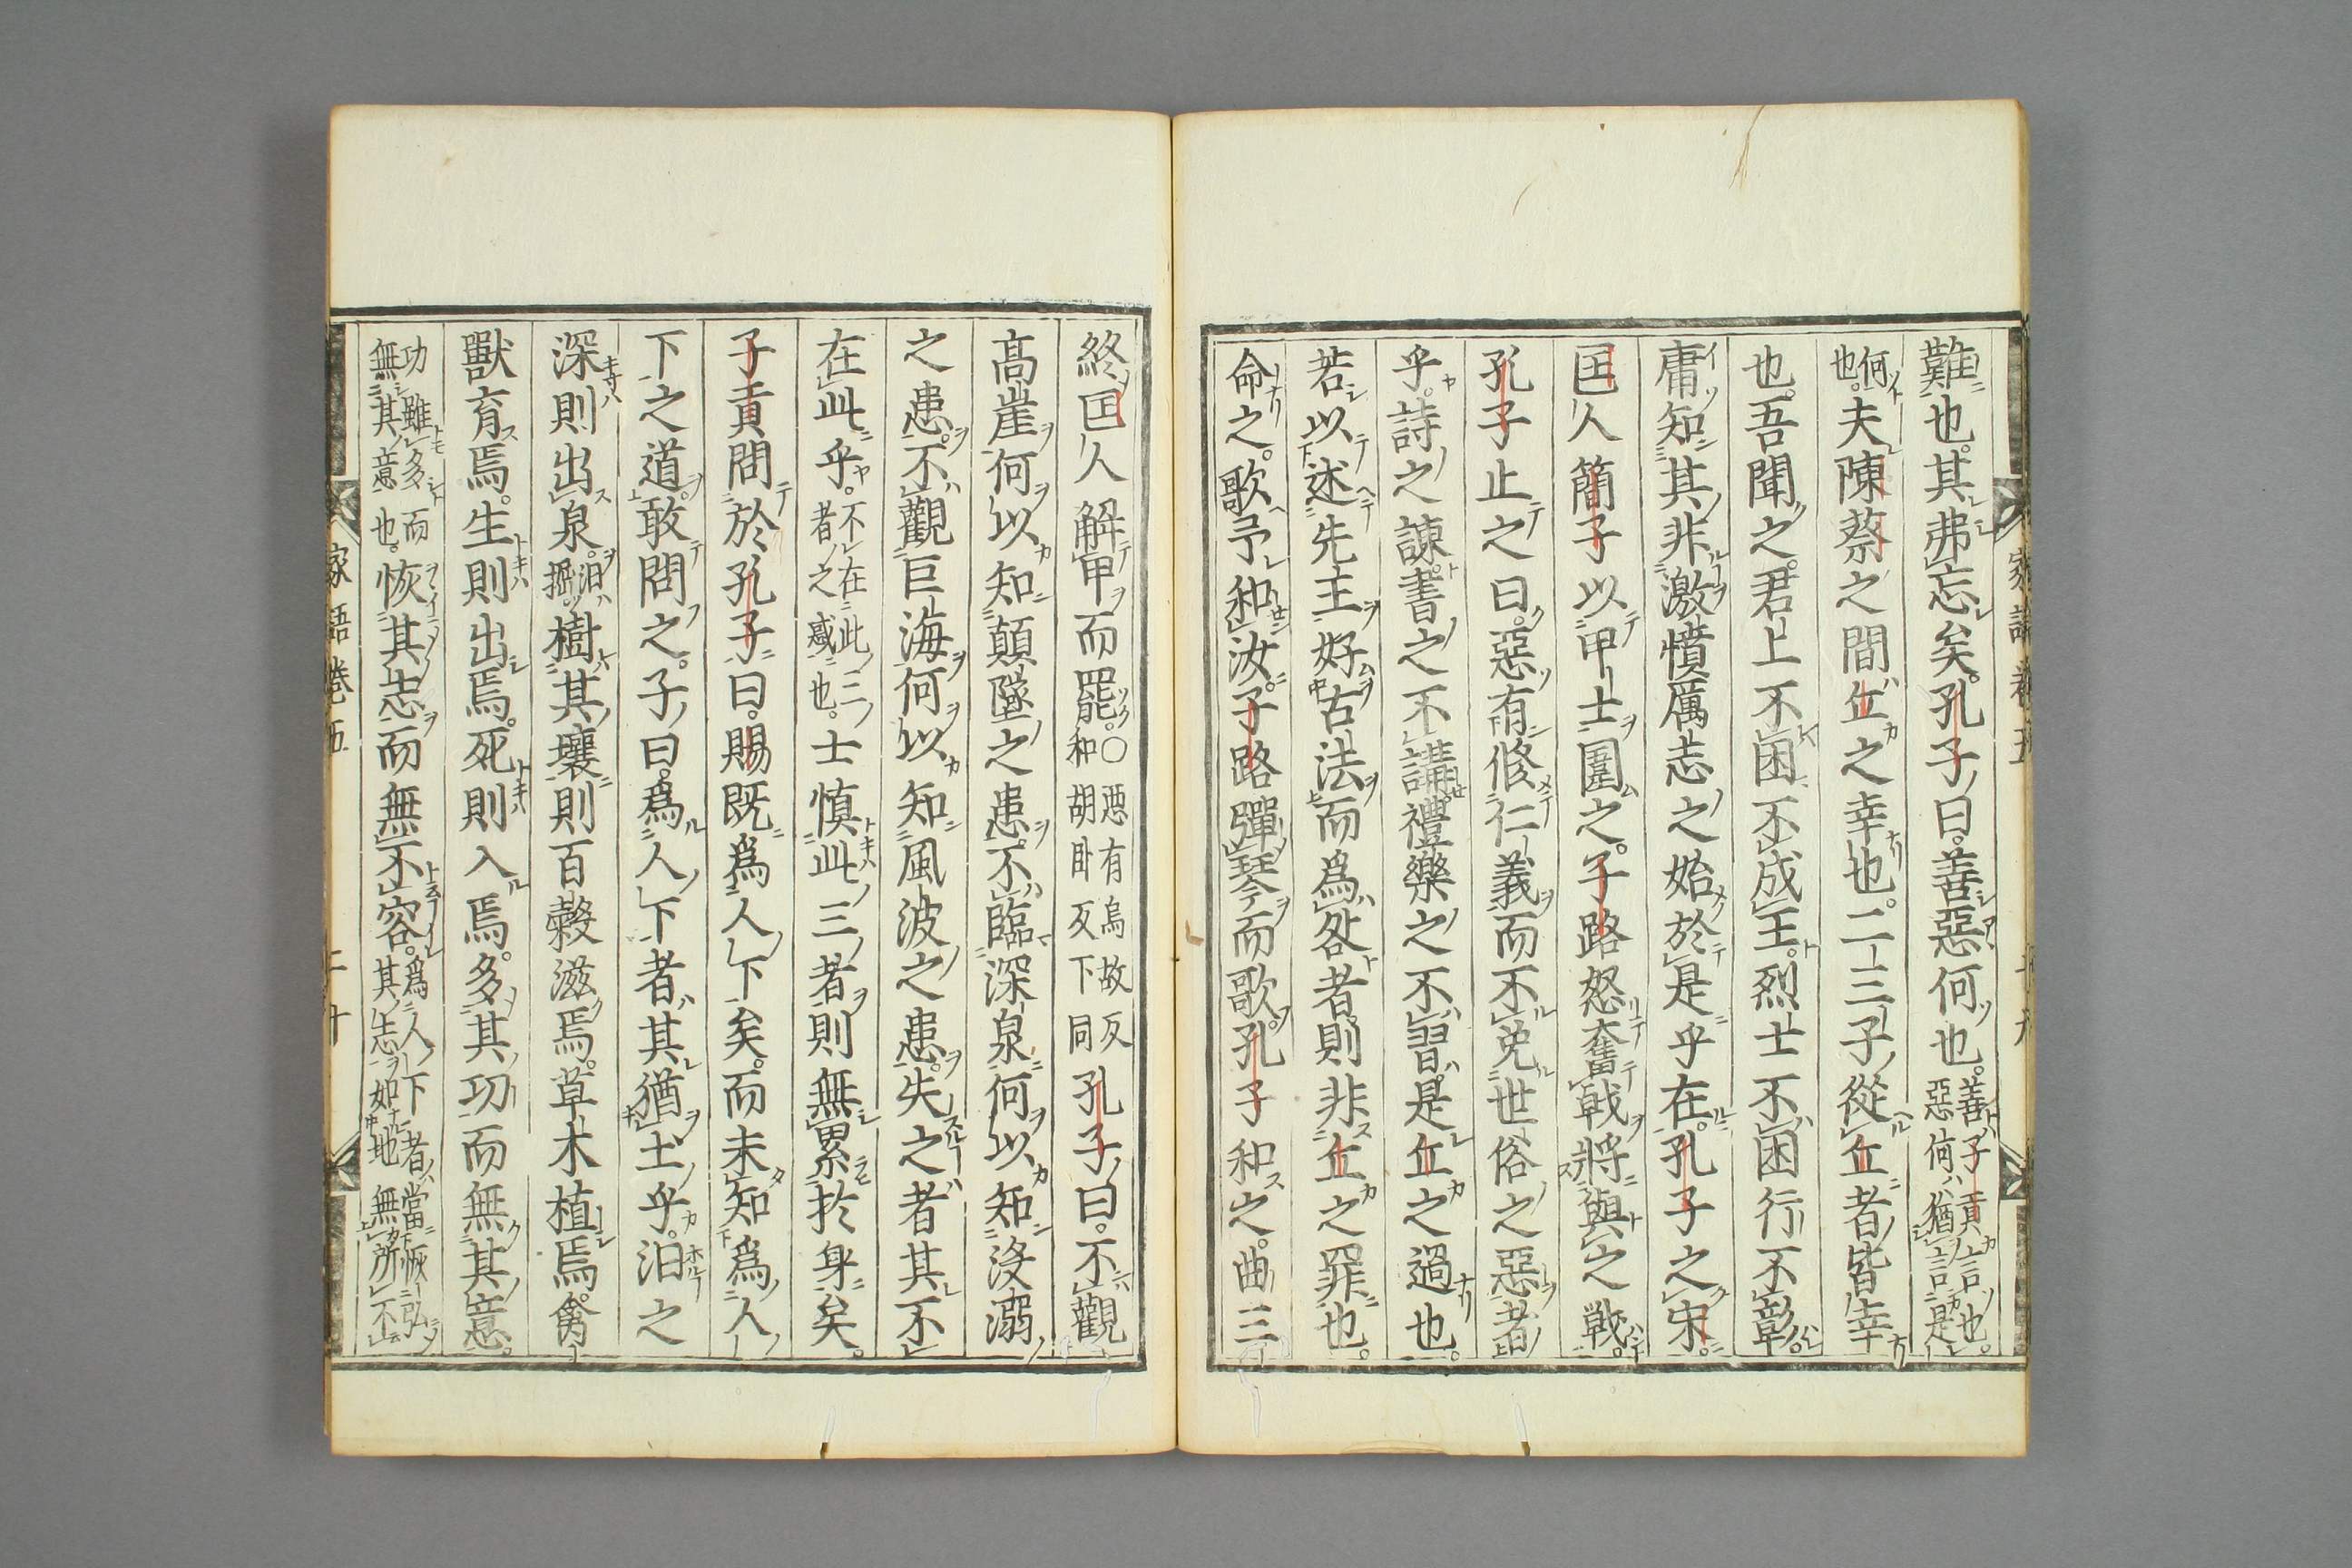 難也。其弗忘矣。孔子曰。善惡何也。善子貢言也。惡何猶言是
何也。夫陳蔡之間丘之幸也。二三子從丘者皆幸
也。吾聞之。君上不困不成王。烈士不困行不彰。
庸知其非激憤厲志之始於是乎在。孔子之宋。
匡人簡子以甲士圍之。子路怒奮戟將與之戰。
孔子止之曰。惡有修仁義而不免世俗之惡者
乎。詩之不講禮樂之不習是丘之過也。
若以述先王好古法而爲咎者則非丘之罪也。
命之。歌予和汝子路彈琴而歌。孔子和之。曲三
終匡人解甲而罷。〇惡有烏故反和胡卧反下同孔子曰。不觀
高崖何以知顛墜之患。不臨深泉何以知沒溺
之患。不觀巨海何以知風波之患。失之者其不
在此乎。不在此三者之惑也。士慎此三者則無累於身矣。
子貢問於孔子曰。賜既爲人下矣。而未知爲人
下之道。敢問之。子曰。爲人下者其猶土乎。汨之
深則出泉。汨掘樹其壤則百穀滋焉。草木植焉。禽
獸育焉。生則出焉。死則入焉。多其功而無其意。
功雖多而無其意也。恢其志而無不容。爲人下者當恢弘其志如地無所不
家語卷五
二十